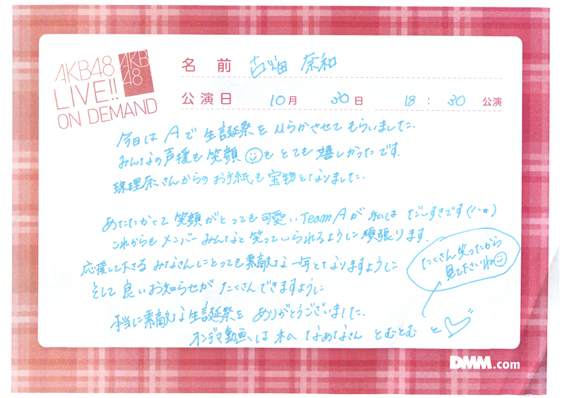 AKB48
LIVE!!
ON DEMAND
AKB
48
名 前 古畑 奈和
公演日 10月 30日 18 : 30 公演
今日は Aで 生誕祭を ひらかさせて もらいました.
みんなの声援も 笑顔も とても 嬉しかったです.
珠理奈さんからの お手紙も 宝物となりました.
あたたかくて 笑顔がとっても可愛い Team Aが 私は だいすきです
これからも メンバーみんなと 笑っていられるように 頑張ります.
応援して下さる みなさんにとっても 素敵な 一何となりますように
そして 良いお知らせが たくさん できますように
本当に素敵な 生誕祭を ありがとうございました.
オンデマ動画は 私 なあなさん とむとむ と
たくさん 笑ったから
見てくださいね
DMM.com